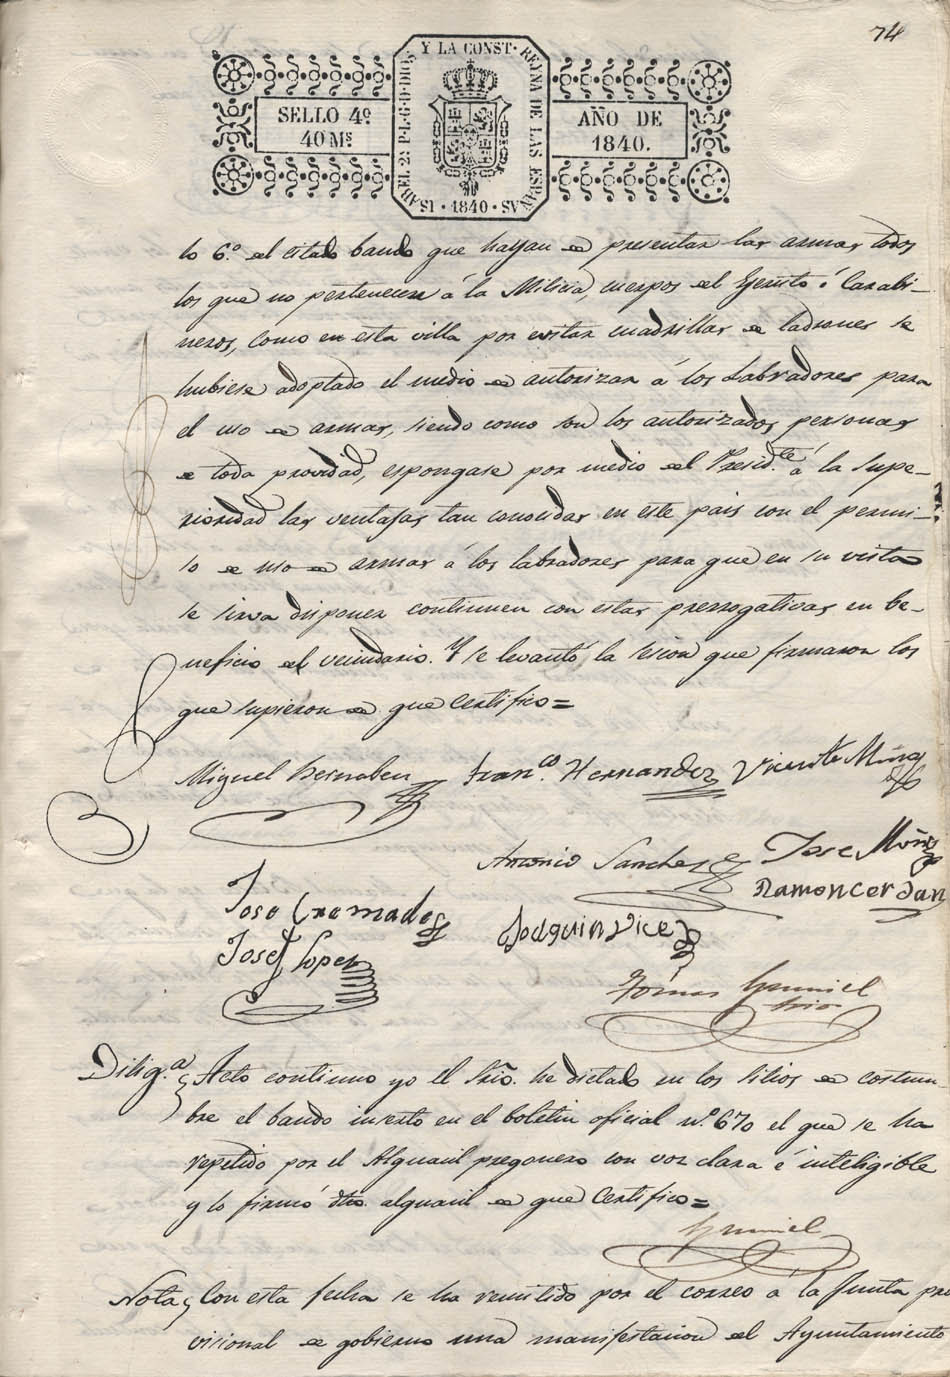 74
ISABEL 2ª P.L.G.D.DIOS Y LA CONST. REYNA DE LAS ESPAÑAS · 1840 ·
SELLO 4º
40 Ms
AÑO DE
1840.
lo 6.º del citado bando que hayan de presentar las armas todos
los que no pertenecen á la Milicia, cuerpos del Ejercito ó Carabi-
neros, como en esta villa por evitar cuadrillas de ladrones se
hubiese adoptado el medio de autorizar á los Labradores para
el uso de armas, siendo como son los autorizados personas
de toda providad, espongase por medio del Presid.te á la Supe-
rioridad las ventajas tan conocidas en este pais con el permi-
so de uso de armas á los labradores para que en su vista
se sirva disponer continuen con estas prerrogativas en be-
neficio del vecindario. Y se levantó la sesion que firmaron los
que supieron de que certifico=
Miguel Bernabeu Fran.co Hernandez Vicente Muñoz
Antonio Sanchez Jose Muñoz
Jose Cremades Joaquin Vice Ramon Cerdan
Josef Lopez
Tomas
Srio
Dilig.a Acto continuo yo el Srio. he dictado en los sitios de costum-
bre el bando inserto en el boletin oficial n.º 670 el que se ha
repetido por el Alguacil pregonero con voz clara é inteligible
y lo firmó dho. alguacil de que Certifico=
Nota Con esta fecha se ha remitido por el correo á la Junta pro
visional de gobierno una manifestacion del Ayuntamiento